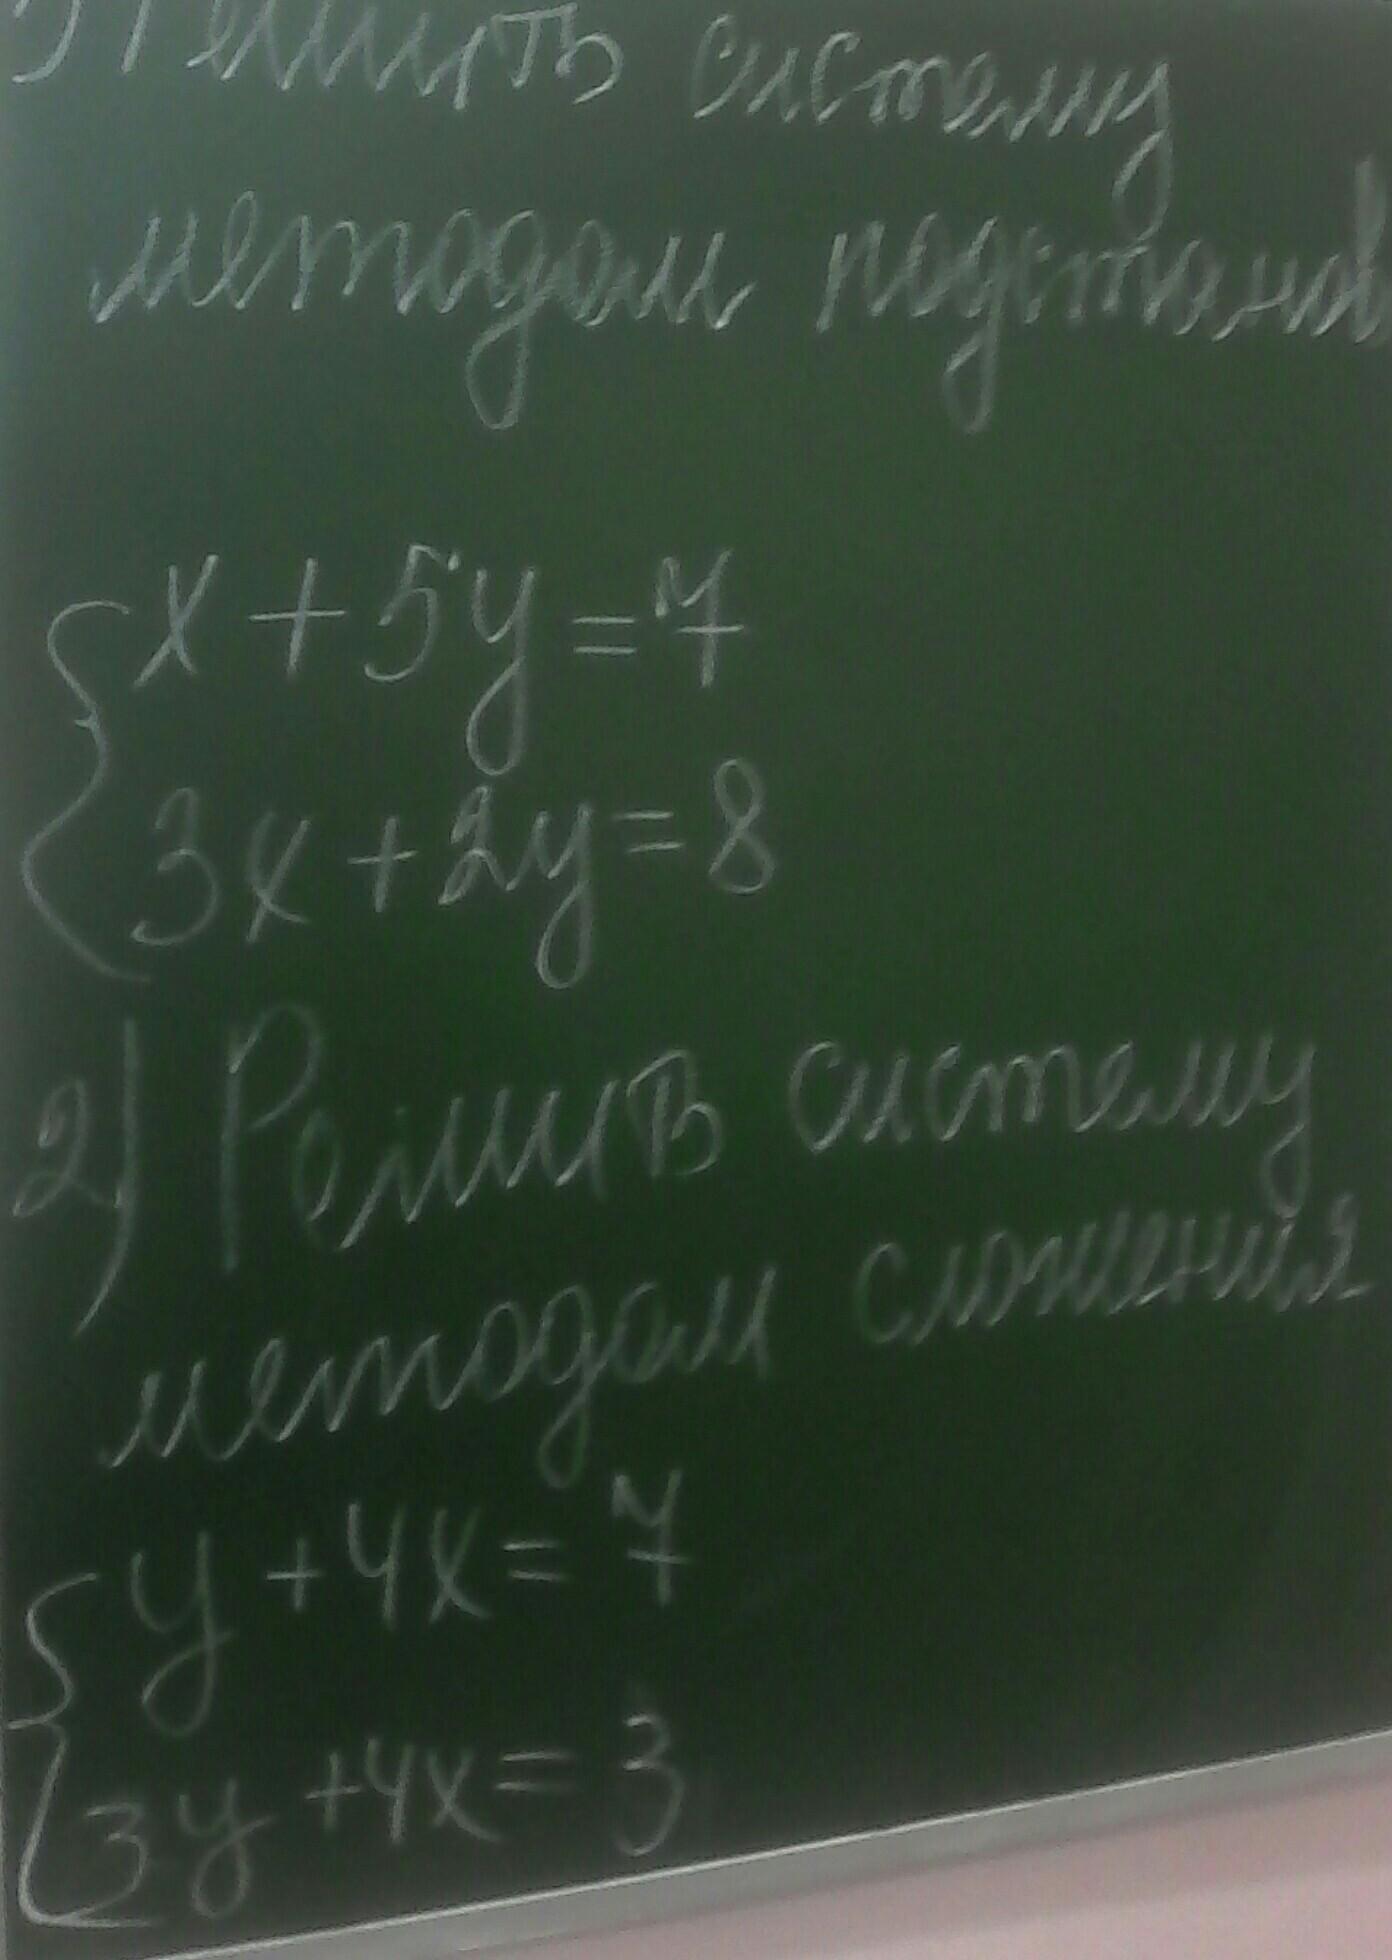 ) Решить систему
методом подстанов
x + 5y = 7
3x + 2y = 8
2) Решить систему
методом сложения
y + 4x = 7
3y + 4x = 3